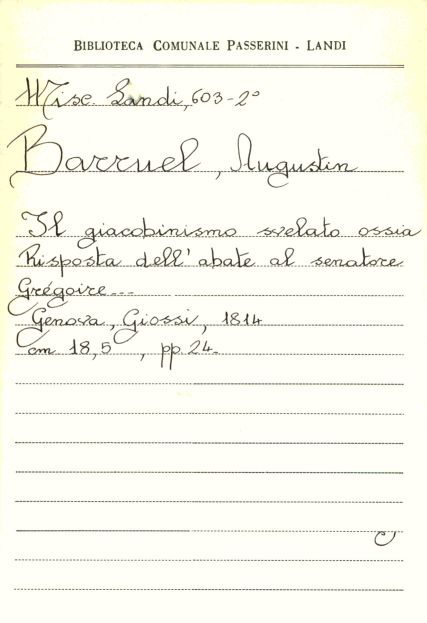 BIBLIOTECA COMUNALE PASSERINI - LANDI
Misc. Landi, 603-2°
Barruel, Augustin
Il giacobinismo svelato ossia
Risposta dell'abate al senatore
Grégoire...
Genova, Giossi, 1814
cm 18,5, pp. 24.